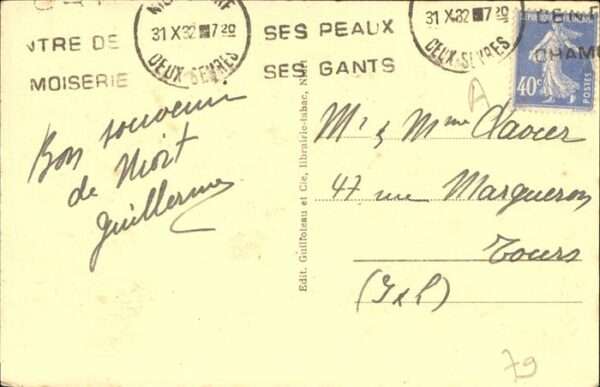 31 X 32 7 20
DEUX-SEVRES
NTRE DE
MOISERIE
SES PEAUX
SES GANTS
31 X 32 7 20
DEUX-SEVRES
CHAMO
40c
POSTES
A
Bon souvenir
de Niort
Guillerme
Edit. Guilloteau et Cie, librairie-tabac,
Mr & Mme
47 rue Margueron
Tours
(I & L)
79